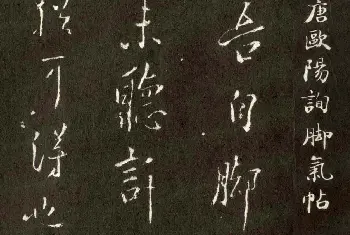 唐歐陽詢脚氣帖
吾自脚
未聽許
可得也